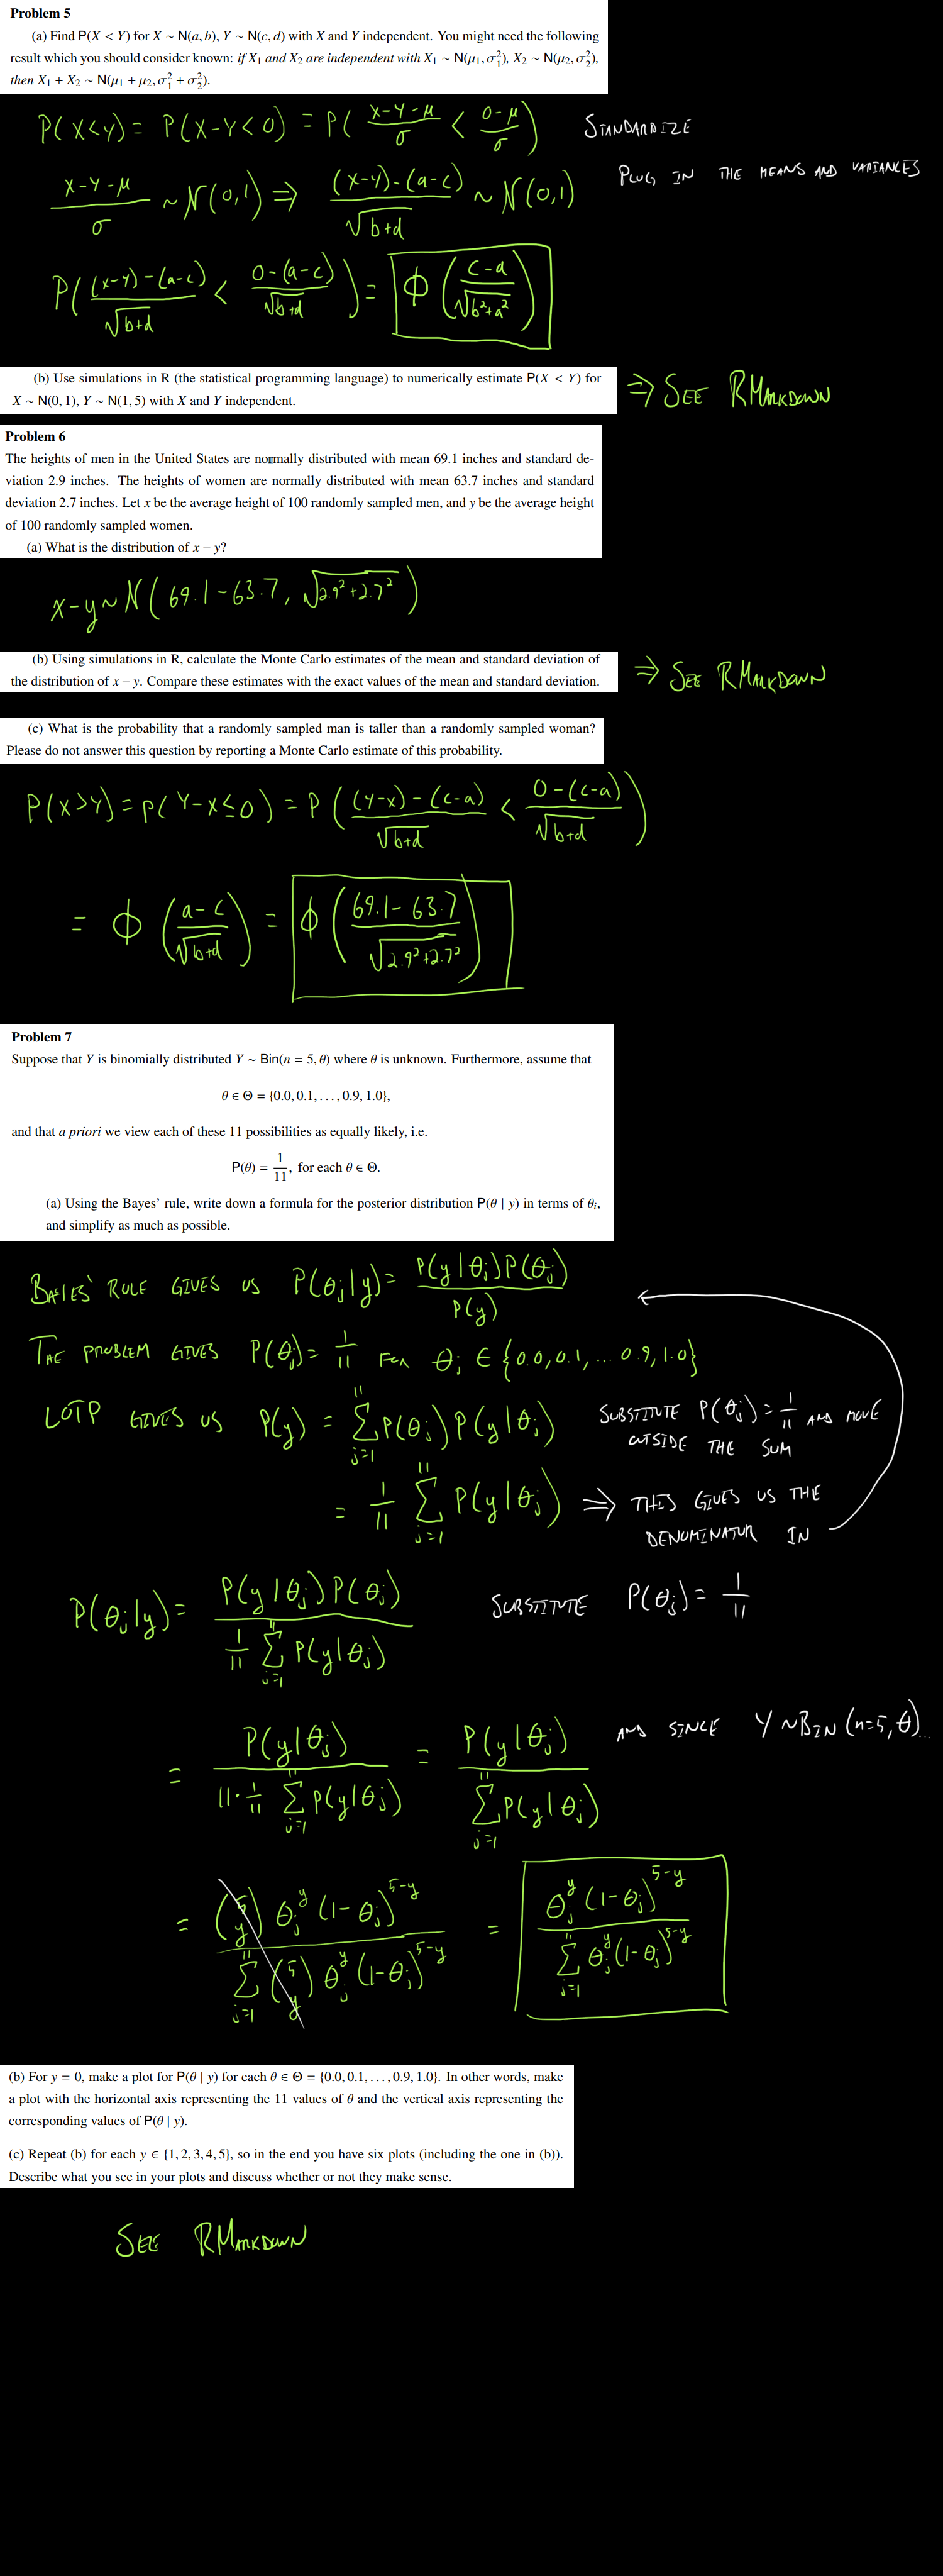 Problem 5
(a) Find P(X < Y) for X ~ N(a, b), Y ~ N(c, d) with X and Y independent. You might need the following
result which you should consider known: if X₁ and X₂ are independent with X₁ ~ N(μ₁, σ₁²), X₂ ~ N(μ₂, σ₂²),
then X₁ + X₂ ~ N(μ₁ + μ₂, σ₁² + σ₂²).
P(X<Y) = P(X-Y<0) = P( (X-Y-μ)/σ < (0-μ)/σ ) STANDARDIZE
(X-Y-μ)/σ ~ N(0,1) ⇒ ((X-Y)-(a-c))/√(b+d) ~ N(0,1) PLUG IN THE MEANS AND VARIANCES
P( ((X-Y)-(a-c))/√(b+d) < (0-(a-c))/√(b+d) ) = Φ( (c-a)/√(b²+a²) )
(b) Use simulations in R (the statistical programming language) to numerically estimate P(X < Y) for
X ~ N(0, 1), Y ~ N(1, 5) with X and Y independent.
⇒ SEE RMARKDOWN
Problem 6
The heights of men in the United States are normally distributed with mean 69.1 inches and standard de-
viation 2.9 inches. The heights of women are normally distributed with mean 63.7 inches and standard
deviation 2.7 inches. Let x be the average height of 100 randomly sampled men, and y be the average height
of 100 randomly sampled women.
(a) What is the distribution of x − y?
x-y ~ N( 69.1-63.7, √(2.9²+2.7²) )
(b) Using simulations in R, calculate the Monte Carlo estimates of the mean and standard deviation of
the distribution of x − y. Compare these estimates with the exact values of the mean and standard deviation.
⇒ SEE RMARKDOWN
(c) What is the probability that a randomly sampled man is taller than a randomly sampled woman?
Please do not answer this question by reporting a Monte Carlo estimate of this probability.
P(X>Y) = P(Y-X≤0) = P( ((Y-X)-(c-a))/√(b+d) < (0-(c-a))/√(b+d) )
= Φ( (a-c)/√(b+d) ) = Φ( (69.1-63.7)/√(2.9²+2.7²) )
Problem 7
Suppose that Y is binomially distributed Y ~ Bin(n = 5, θ) where θ is unknown. Furthermore, assume that
θ ∈ Θ = {0.0, 0.1, . . . , 0.9, 1.0},
and that a priori we view each of these 11 possibilities as equally likely, i.e.
P(θ) = 1/11, for each θ ∈ Θ.
(a) Using the Bayes' rule, write down a formula for the posterior distribution P(θ | y) in terms of θᵢ,
and simplify as much as possible.
BAYES' RULE GIVES US P(θⱼ|y) = P(y|θⱼ)P(θⱼ) / P(y)
THE PROBLEM GIVES P(θⱼ) = 1/11 FOR θⱼ ∈ {0.0, 0.1, ... 0.9, 1.0}
LOTP GIVES US P(y) = Σ_{j=1}^{11} P(θⱼ) P(y|θⱼ) SUBSTITUTE P(θⱼ) = 1/11 AND MOVE
OUTSIDE THE SUM
= 1/11 Σ_{j=1}^{11} P(y|θⱼ) ⇒ THIS GIVES US THE
DENOMINATOR IN
P(θⱼ|y) = P(y|θⱼ)P(θⱼ) / (1/11 Σ_{j=1}^{11} P(y|θⱼ)) SUBSTITUTE P(θⱼ) = 1/11
= P(y|θⱼ) / (11·1/11 Σ_{j=1}^{11} P(y|θⱼ)) = P(y|θⱼ) / Σ_{j=1}^{11} P(y|θⱼ) AND SINCE Y ~ BIN(n=5, θ)...
= (5 y) θⱼ^y (1-θⱼ)^{5-y} / Σ_{j=1}^{11} (5 y) θⱼ^y (1-θⱼ)^{5-y} = θⱼ^y (1-θⱼ)^{5-y} / Σ_{j=1}^{11} θⱼ^y (1-θⱼ)^{5-y}
(b) For y = 0, make a plot for P(θ | y) for each θ ∈ Θ = {0.0, 0.1, . . . , 0.9, 1.0}. In other words, make
a plot with the horizontal axis representing the 11 values of θ and the vertical axis representing the
corresponding values of P(θ | y).
(c) Repeat (b) for each y ∈ {1, 2, 3, 4, 5}, so in the end you have six plots (including the one in (b)).
Describe what you see in your plots and discuss whether or not they make sense.
SEE RMARKDOWN